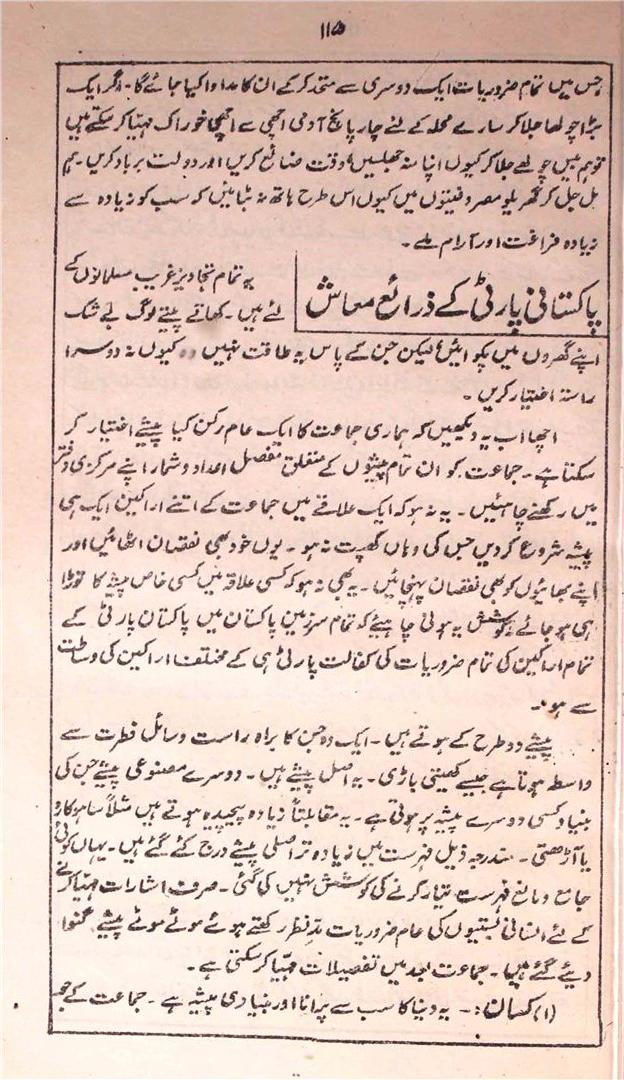 ۱۱۵
جس میں تمام ضروریات ایک دوسری سے متحد کر کے ان کا مداوا کیا جائے گا۔ اگر ایک
بڑا چولھا جلا کر سارے محلہ کے لئے چار پانچ آدمی اچھی سے اچھی خوراک مہیّا کر سکتے ہیں
تو ہم بیس چولھے جلا کر کیوں اپنا منہ جھلسیں، وقت ضائع کریں اور دولت برباد کریں۔ ہم
مل جل کر گھریلو مصروفیتوں میں کیوں اس طرح ہاتھ نہ بٹائیں کہ سب کو زیادہ سے
زیادہ فراغت اور آرام ملے۔
پاکستانی پارٹی کے ذرائع معاش
یہ تمام تجاویز غریب مسلمانوں کے
لئے ہیں۔ کھاتے پیتے لوگ بے شک
اپنے گھروں میں پکوائیں، لیکن جن کے پاس یہ طاقت نہیں وہ کیوں نہ دوسرا
راستہ اختیار کریں۔
اچھا اب یہ دیکھیں کہ ہماری جماعت کا ایک عام رکن کیا پیشے اختیار کر
سکتا ہے۔ جماعت کو ان تمام پیشوں کے متعلق مفصل اعداد و شمار اپنے مرکزی دفتر
میں رکھنے چاہئیں۔ یہ نہ ہو کہ ایک علاقے میں جماعت کے اتنے اراکین ایک ہی
پیشہ شروع کر دیں جس کی وہاں کھپت نہ ہو۔ یوں خود بھی نقصان اٹھائیں اور
اپنے بھائیوں کو بھی نقصان پہنچائیں۔ یہ بھی نہ ہو کہ کسی علاقہ میں کسی خاص پیشہ کا توڑا
ہی ہو جائے، کوشش یہ ہونی چاہیئے کہ تمام سرزمین پاکستان میں پاکستان پارٹی کے
تمام اراکین کی تمام ضروریات کی کفالت پارٹی ہی کے مختلف اراکین کی وساطت
سے ہو۔
پیشے دو طرح کے ہوتے ہیں۔ ایک وہ جن کا براہ راست وسائل فطرت سے
واسطہ ہوتا ہے جیسے کھیتی باڑی۔ یہ اصل پیشے ہیں۔ دوسرے مصنوعی پیشے جن کی
بنیاد کسی دوسرے پیشہ پر ہوتی ہے۔ یہ مقابلتاً زیادہ پیچیدہ ہوتے ہیں مثلاً ساہوکارہ
یا آڑھتی۔ مندرجہ ذیل فہرست میں زیادہ تر اصلی پیشے درج کئے گئے ہیں۔ یہاں کوئی
جامع و مانع فہرست تیار کرنے کی کوشش نہیں کی گئی۔ صرف اشارات مہیّا کرنے
کے لئے انسانی بستیوں کی عام ضروریات مدِّنظر رکھتے ہوئے موٹے موٹے پیشے گنوا
دیئے گئے ہیں۔ جماعت بعد میں تفصیلات مہیّا کر سکتی ہے۔
(۱) کسان:۔ یہ دنیا کا سب سے پرانا اور بنیادی پیشہ ہے۔ جماعت کے